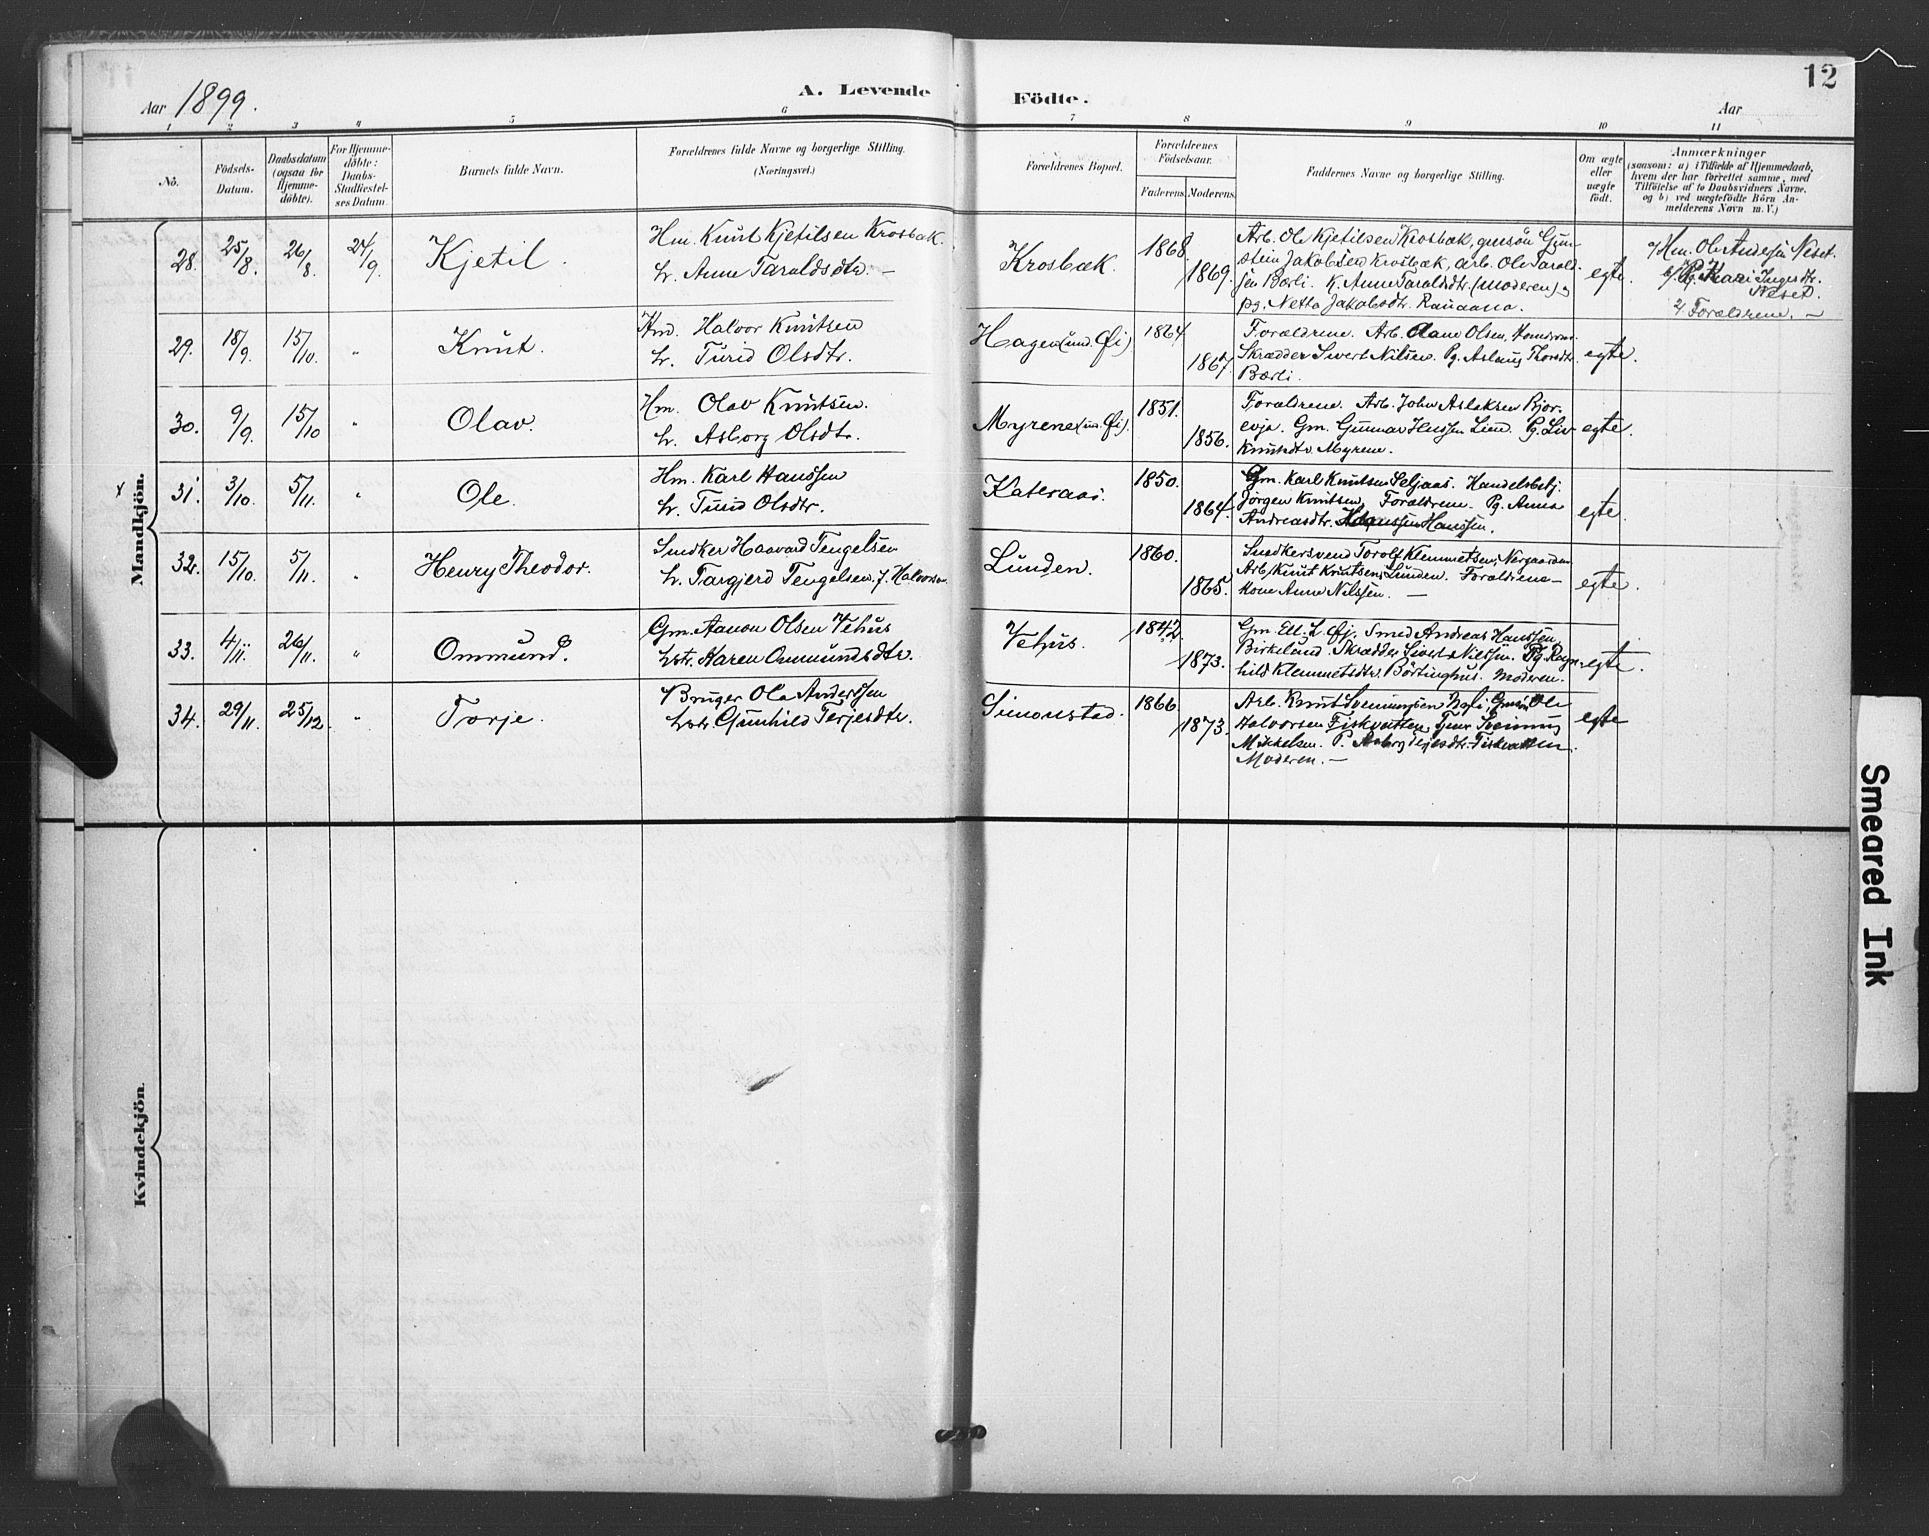 12
Aar 1899.
A. Levende Födte.
Aar
1 2 3 4 5 6 7 8 9 10 11
No.
Födsels-
Datum.
Daabsdatum
(ogsaa for
Hjemme-
döbte).
For Hjemme-
döbte:
Daabs-
Stadfæstel-
ses Datum.
Barnets fulde Navn.
Forældrenes fulde Navne og borgerlige Stilling.
(Næringsvei.)
Forældrenes Bopæl.
Forældrenes
Födselsaar.
Faderens.
Moderens.
Faddernes Navne og borgerlige Stilling.
Om ægte
eller
uægte
födt.
Anmærkninger
(saasom: a) i Tilfælde af Hjemmedaab,
hvem der har forrettet samme, med
Tilföielse af to Daabsvidners Navne,
og b) ved uægtefödte Börn An-
melderens Navn m. V.)
Mandkjön.
28. 25/8. 26/8. 24/9. Kjetil.
Hm. Knut Kjetilsen Krosbæk.
h. Anne Taraldsdtr. —
Krosbæk. 1868 1869.
Arb. Ole Kjetilsen Krosbæk, Gun-
stein Jakobsen Krosbæk, Arb. Ole Tarald-
sen Bærli. K. Anne Taraldsdtr (moderen) og
pg. Netta Jakobsdtr. Ranaana.
egte.
Hm. Ole Andersen Neset.
Pg. Kari Ingersdtr.
Neset.
Forældrene. —
29. 18/9. 15/10. " Knut.
Hm. Halvor Knutsen
h. Turid Olsdtr.
Hagen (und. Øi) 1864 1867.
Forældrene. Arb. Olsen,
Skrædder Sivert Nilsen. Pg. Aslaug Thorsdtr.
Bærli.
egte.
30. 9/9. 15/10 " Olav.
Hm. Olav Knutsen.
h. Asborg Olsdtr.
Myrene (un. Øi). 1851. 1856.
Forældrene. Arb. John Aslaksen Bjor-
evja. Gm. Gunnar Lien. Pg. Liv
Knutsdtr. Myrene.
egte.
x 31. 3/10. 5/11. " Ole.
Hm. Karl Hanssen
h. Turid Olsdtr.
Kateraas. 1850. 1864.
Gm. Karl Knutsen Seljaas. Handelsbetj.
Jørgen Knutsen, Forældrene. Pg. Anna
Andreasdtr. Hanssen.
egte.
32. 15/10. 5/11. " Henry Theodor.
Snedker Haavard Tengelsen
h. Targjerd Tengelsen, f. Halvorsen.
Lunden. 1860. 1865.
Snedkersvend Torolf Klemmetsen, Nergaarden
Arb. Knut Knutsen, Lunden. Forældrene—
Kone Anne Nilssen. —
egte.
33. 4/11. 26/11. " Ommund.
Gm. Aanon Olsen Vehus
hstr. Karen Ommundsdtr.
Vehus. 1842. 1873.
Gm. Ell. L. Øj. Smed Andreas Hanssen
Birkelund, Skrædder Sivert Nilssen. Pg. Ragn-
hild Klemmetsdtr. Børtinghus. Moderen.
egte.
34. 29/11. 25/12. " Torje.
Bruger Ole Anderssen
hstr. Gunhild Terjesdtr.
Simonstad. 1866. 1873.
Arb. Knut Ole
Halvorsen Fiskvatten,
Mikkelsen. P. Asborg Fiskvatten.
Moderen. —
egte
Kvindekjön.
Smeared Ink